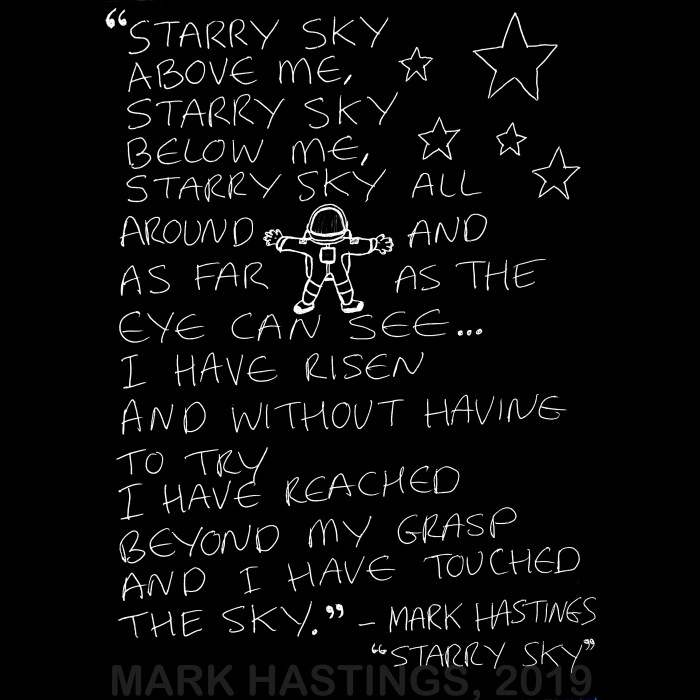 “STARRY SKY
ABOVE ME,
STARRY SKY
BELOW ME,
STARRY SKY ALL
AROUND AND
AS FAR AS THE
EYE CAN SEE...
I HAVE RISEN
AND WITHOUT HAVING
TO TRY
I HAVE REACHED
BEYOND MY GRASP
AND I HAVE TOUCHED
THE SKY.” – MARK HASTINGS
“STARRY SKY”
MARK HASTINGS, 2019